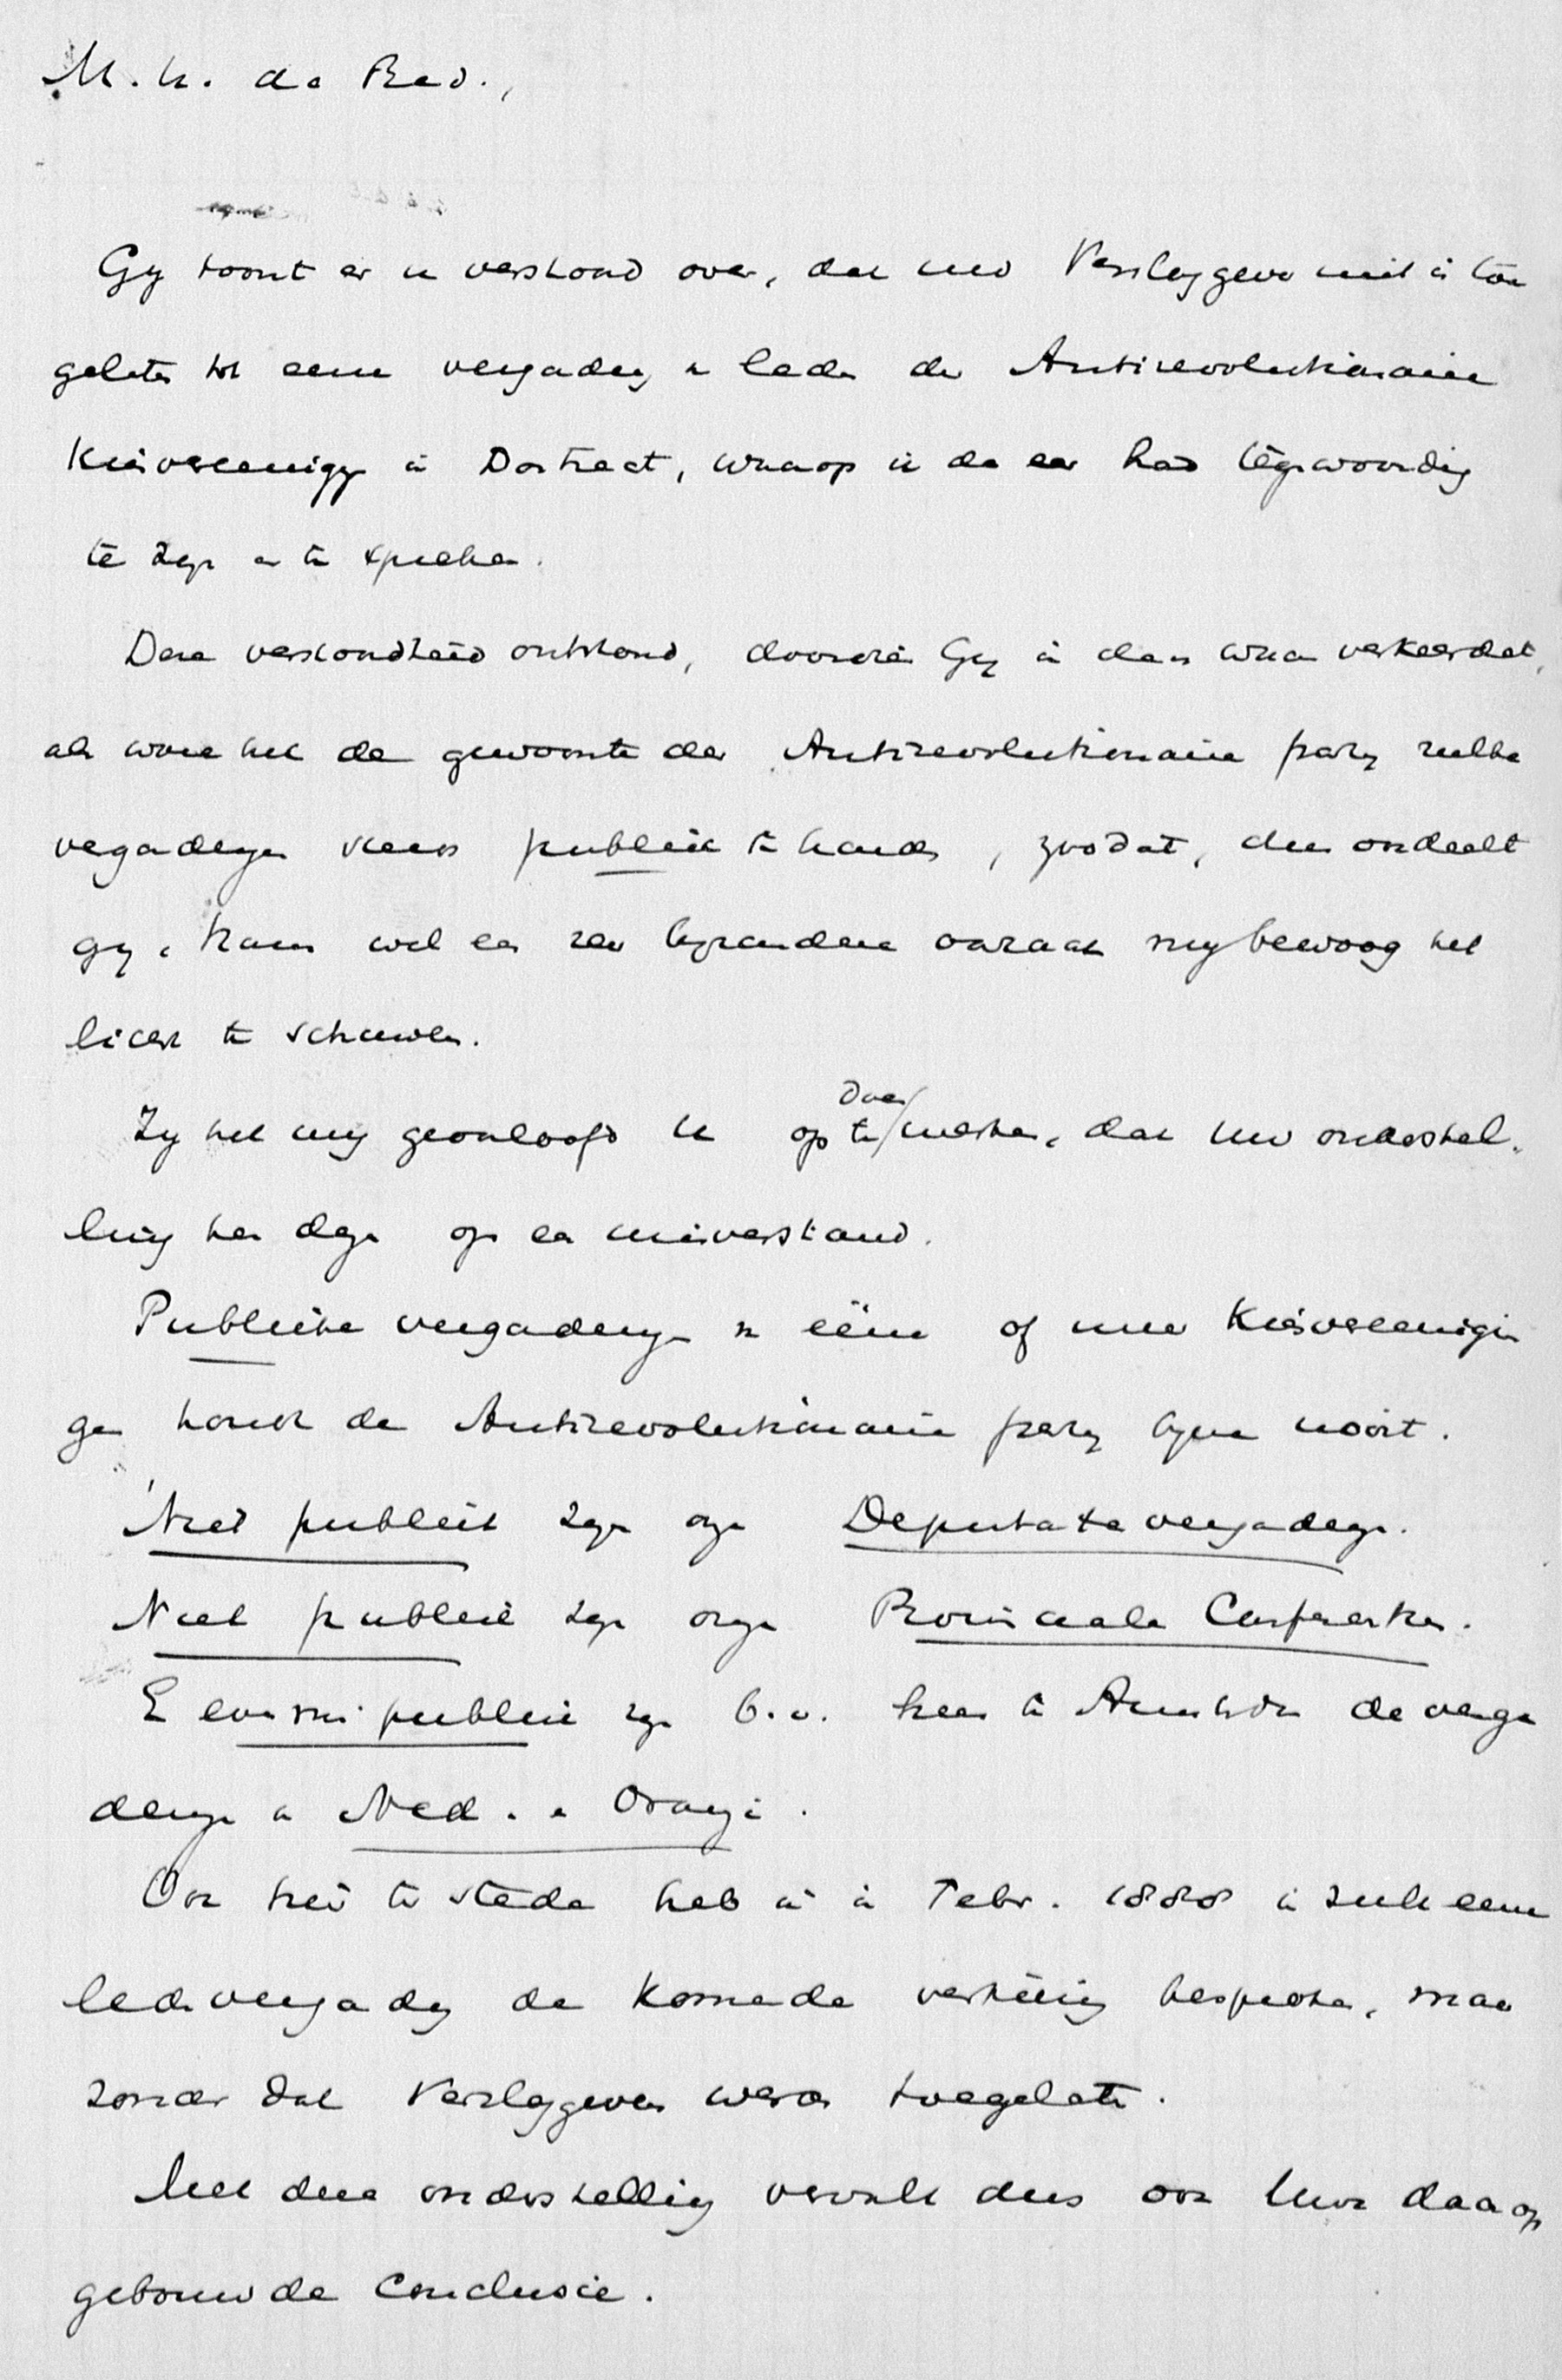 M. h. de Red.,
Gij toont er u verstoord over, dat uw Verslaggever niet is toe
gelaten tot eene vergadering van leden der Antirevolutionaire
Kiesvereeniging in Dortrecht, waarop ik de eer had tegenwoordig
te zijn en te spreken.
Deze verstoordheid ontstond, doordien Gij in den waan verkeerdet,
als ware het de gewoonte der Antirevolutionaire partij zulke
vergaderingen steeds publiek te houden, zoodat, dus oordeelt
gij, thans wel een zeer bijzondere oorzaak mij bewoog het
licht te schuwen.
Zij het mij geoorloofd U op te doen merken, dat uw onderstel-
ling berust op een misverstand.
Publieke vergaderingen van ééne of meer Kiesvereenigin
gen houdt de Antirevolutionaire partij bijna nooit.
Niet publiek zijn onze Deputatenvergaderingen.
Niet publiek zijn onze Provinciale Conferentien.
Evenmin publiek zijn b.v. hier te Amsterdam de verga
deringen van Ned. en Oranje.
Ook hier te stede heb ik in Febr. 1888 in zulk eene
ledenvergadering de komende verkiezing besproken, maar
zonder dat Verslaggevers werden toegelaten.
Met deze onderstelling vervalt dus ook Uwe daarop
gebouwde Conclusie.